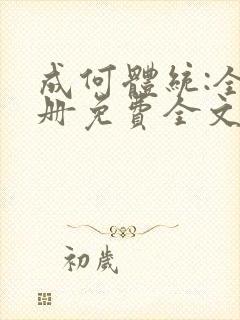 成何體統:全
册免費全文
初歲